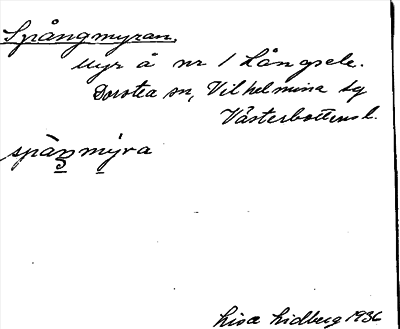 Spångmyran.
Myr å nr 1 Långsele.
Dorotea sn, Vilhelmina tg
Västerbottens l.
spàŋmýra
Lisa Lidberg 1936